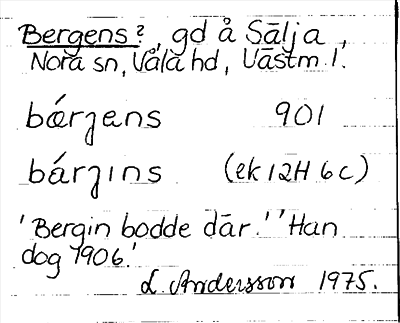 Bergens?, gd å Sälja,
Nora sn, Våla hd, Västm. l.
bǿrʒens 901
bárʒıns (ek 12H 6c)
'Bergin bodde där.' 'Han
dog 1906.'
L. Andersson 1975.